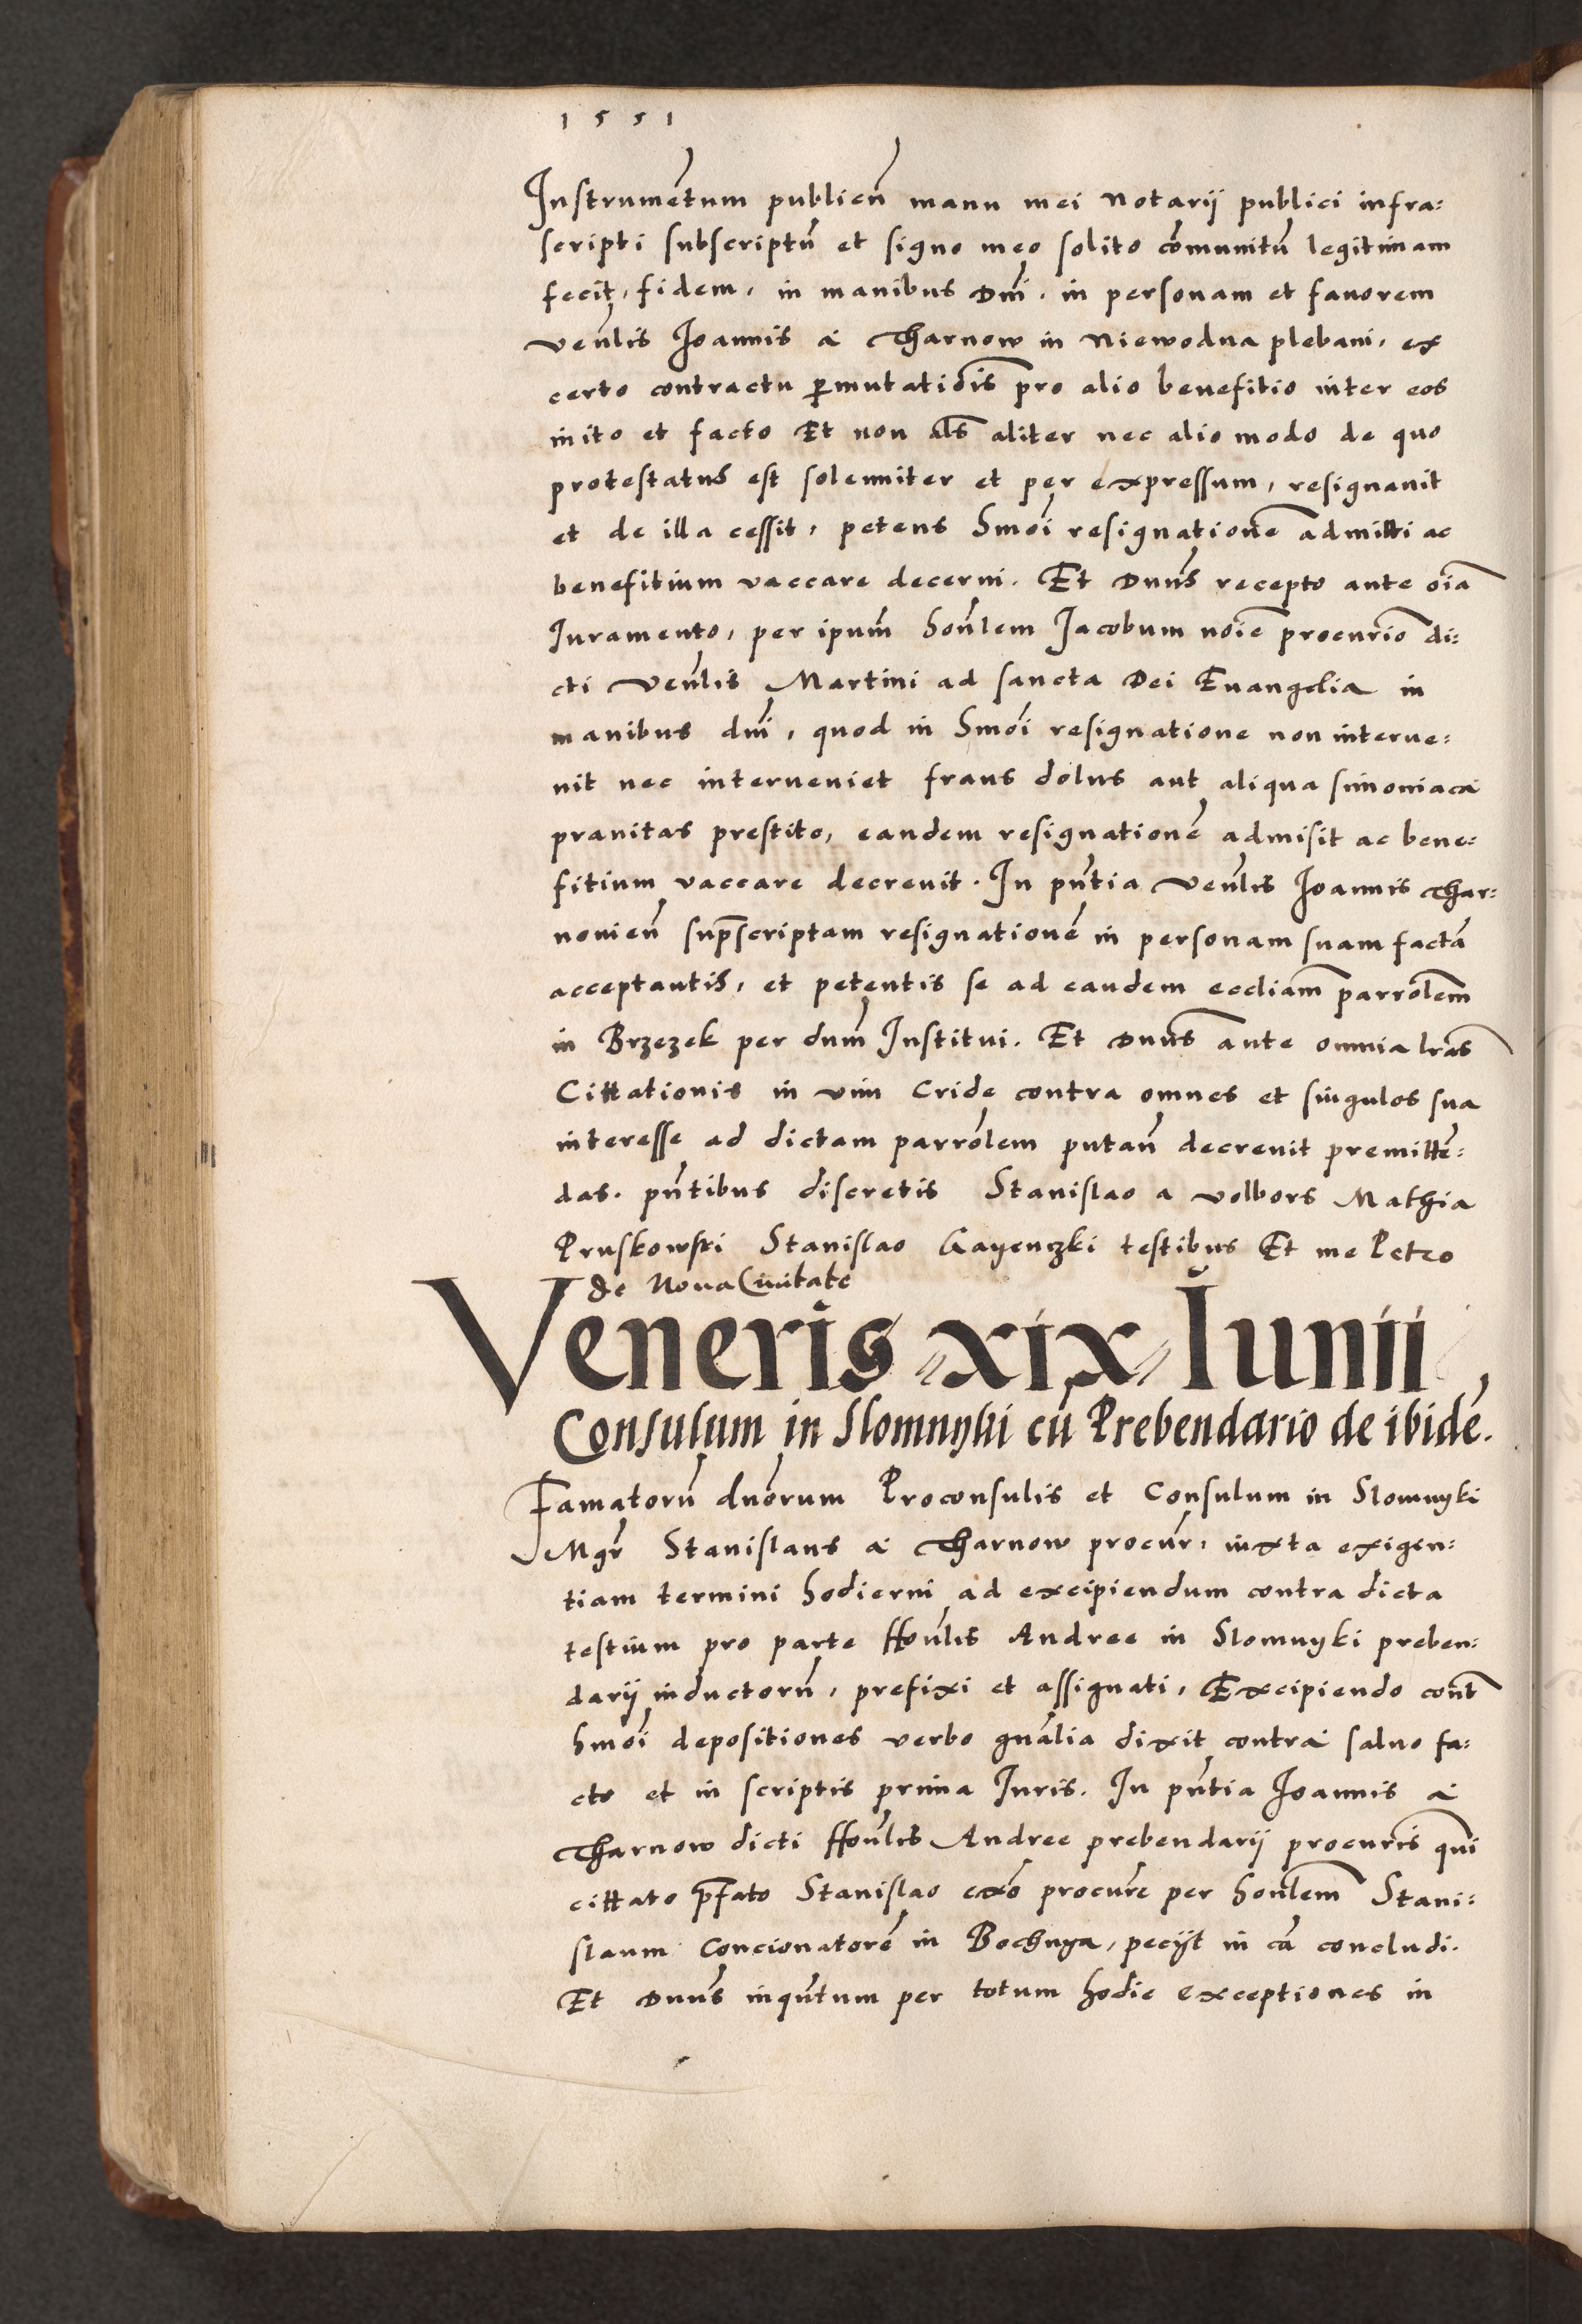 1551
Instrumẽtum publicũ manu mei Notarij publici infra:
scripti subscriptũ et signo meo solito cõmunitũ legitimam
fecit, fidem, in manibus Dnĩ. in personam et fauorem
veñlis Joannis à Tharnow in Niewodna plebani, ex
certo contractu p̱mutatiõis pro alio benefitio inter eos
inito et facto Et non als̃ aliter nec alio modo de quo
protestatus est solenniter et per expressum, resignauit
et de illa cessit, petens hmõi resignationẽ admitti ac
benefitium vaccare decerni. Et Dnũs recepto ante oĩa
Iuramento, per ipsum̃ hoñlem Jacobum noĩe procurĩo di:
cti veñlis Martini ad sancta Dei Euangelia in
manibus dnĩ, quod in hmõi resignatione non interue:
nit nec interueniet fraus dolus aut aliqua simoniaca
prauitas prestito, eandem resignationẽ admisit ac bene:
fitium vaccare decreuit. In pñtia veñlis Joannis Thar:
nouieñ supr̃scriptam resignationẽ in personam suam factã
acceptantis, et petentis se ad eandem eccliam̃ parrõlem
in Brzezek per dnm̃ Institui. Et Dnũs ante omnia lrãs
Cittationis in vim Cride contra omnes et singulos sua
interesse ad dictam parrõlem putañ decreuit premittẽ:
das. pñtibus discretis Stanislao a Volbors Mathia
Pruskowski Stanislao Gayenczki testibus Et me Petro
de Noua Ciuitate
Veneris xix Iunii
Consulum in Slomnyki cũ Prebendario de ibidẽ.
Famatorũ dnõrum Proconsulis et Consulum in Slomnyki
Mgr̃ Stanislaus à Tharnow procur̃, iuxta exigen:
tiam termini hodierni ad excipiendum contra dicta
testium pro parte Hoñlis Andree in Slomnyki preben:
darij inductorũ, prefixi et assignati, Excipiendo cont̃
hmõi depositiones verbo gnãlia dixit contra saluo fa:
cto et in scriptis prima Iuris. In pñtia Joannis à
Tharnow dicti Hoñlis Andree prebendarij procurĩs qui
cittato pr̃fato Stanislao exõ procurẽ per hoñlem Stani:
slaum Concionatorẽ in Bochnya, pecijt in cã concludi.
Et Dnũs inqũtum per totum hodie exceptiones in